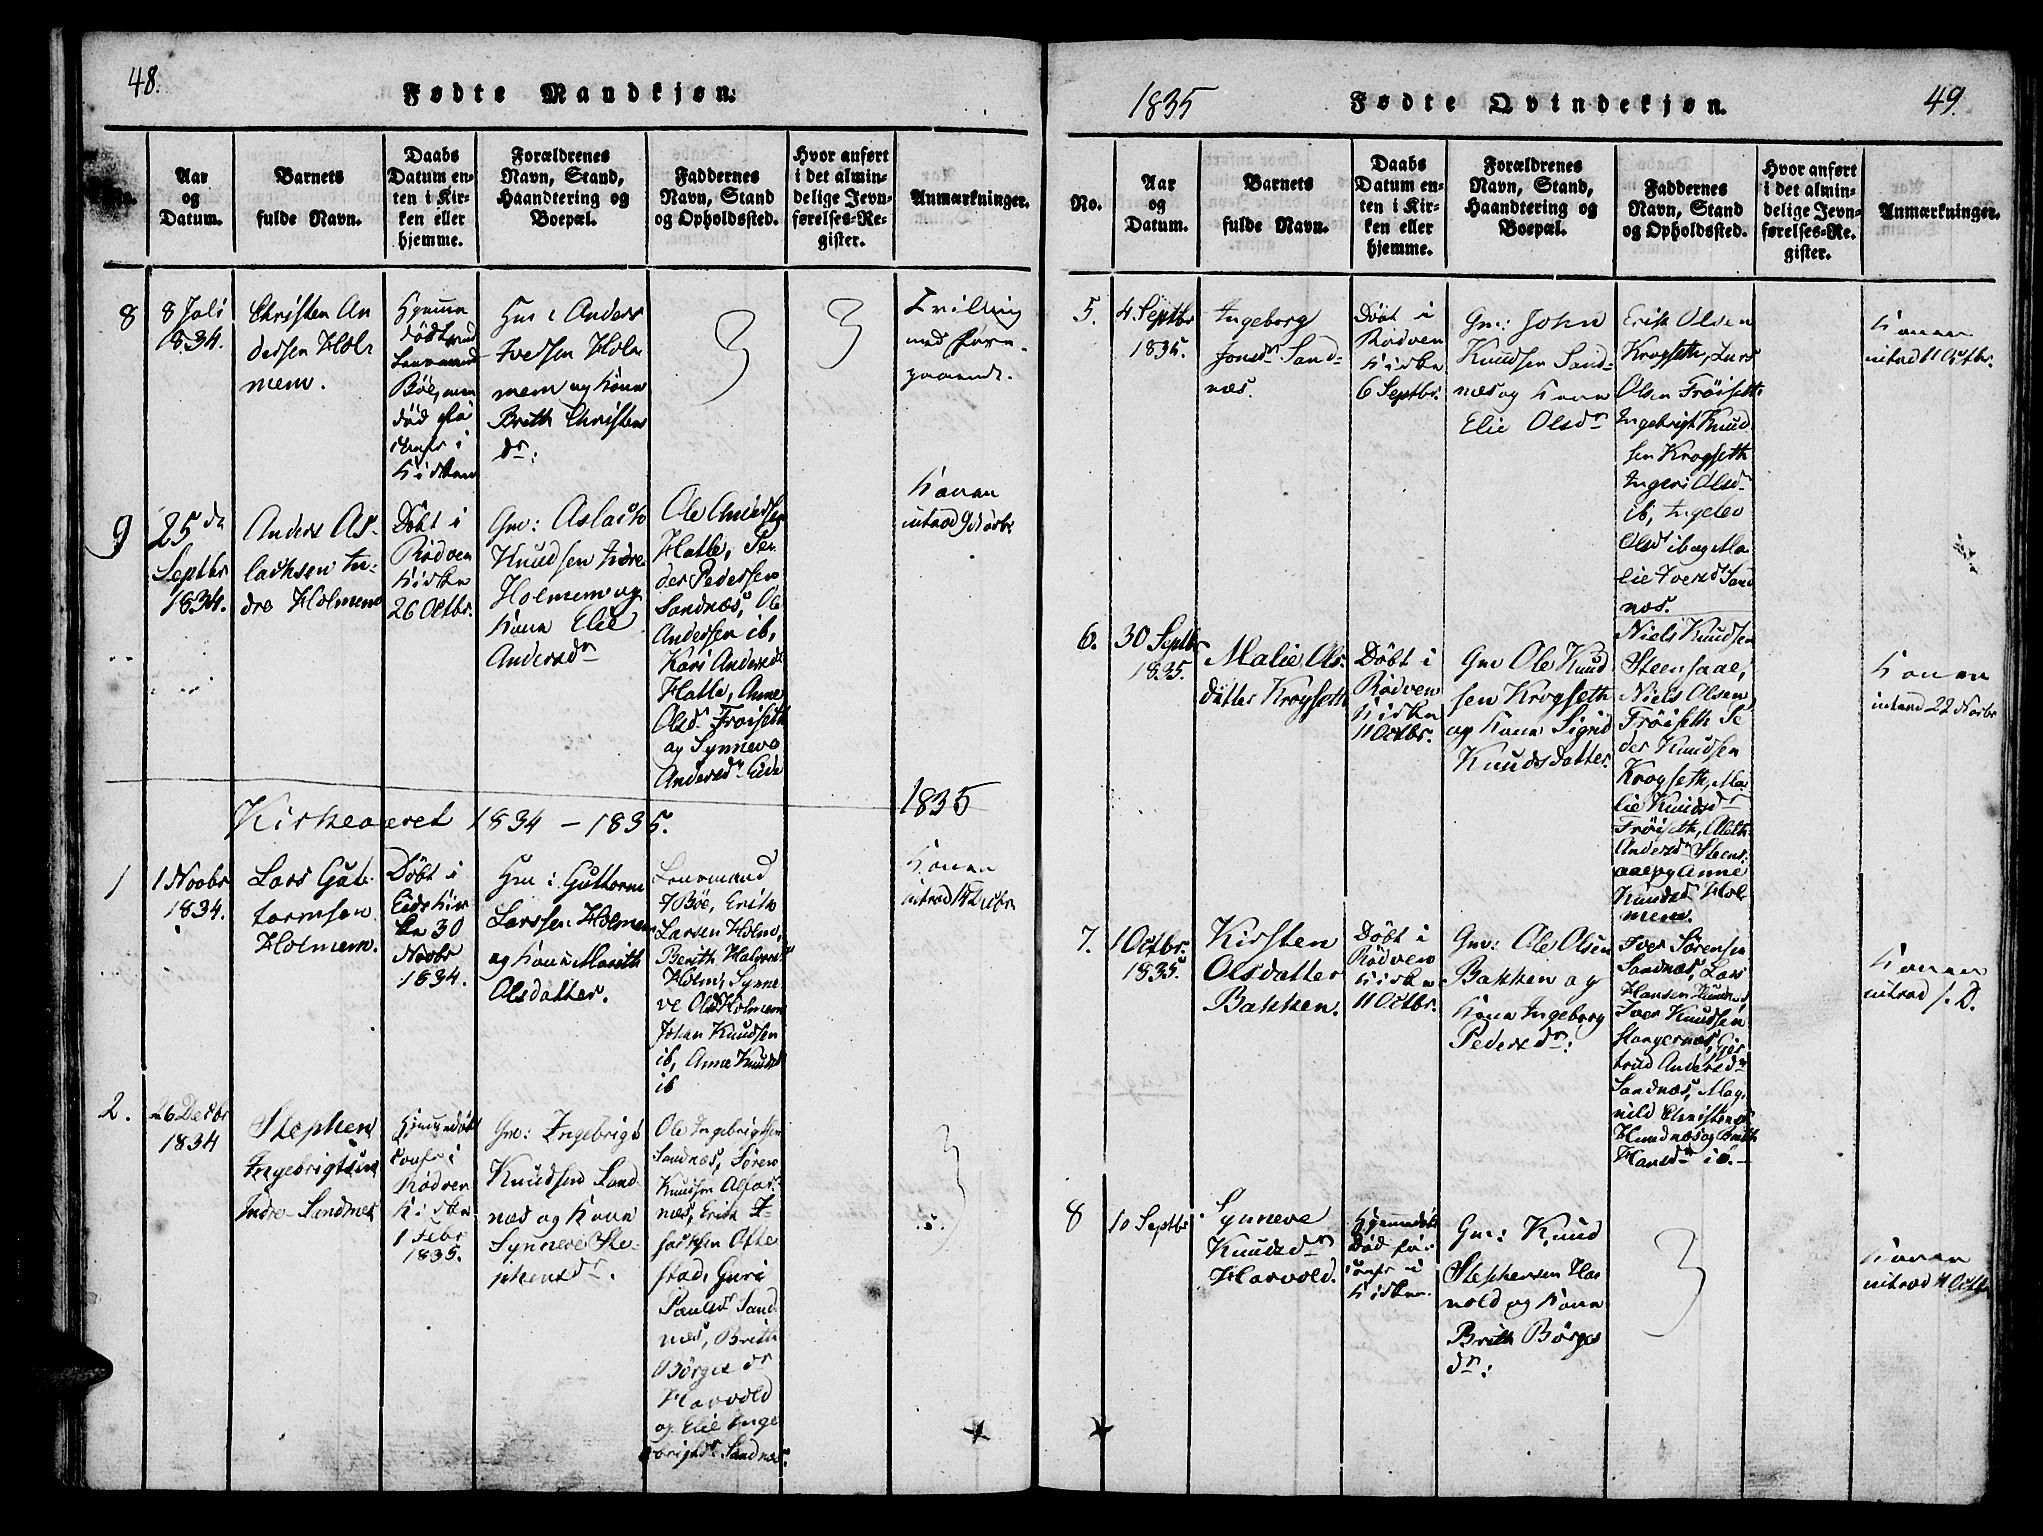 48.
Fødte Mandkjøn.
No.
Aar
og
Datum.
Barnets
fulde Navn.
Daabs
Datum en-
ten i Kir-
ken eller
hjemme.
Forældrenes
Navn, Stand,
Haandtering og
Boepæl.
Faddernes
Navn, Stand
og Opholdssted.
Hvor anført
i det almin-
delige Jevn-
førelses-Re-
gister.
Anmærkninger.
8
8 Juli
1834.
Christen An
dersen Hol
mem.
Hjemme
døbt
Bøe, men
død
i
Kirken
Gm: Anders
Iversen Hol
mem og Kone
Brith Christens
dr:
Tvilling
med Foren-
gaaende.
9
25 de
Septbr
1834.
Anders As-
lachsen In-
dre Holmem
Døbt i
Rødven
Kirke
26 Octbr.
Gm: Aslach
Knudsen Indre
Holmem og
Kone Elie
Andersdr
Ole Andersen
Hatle, Pe
der Pedersen
Sandnæs, Ole
Andersen ib,
Kari Andersdr
Hatle, Anne
Olsdr Frøiseth
og Synneve
Andersdr Eide
Konen
introd 9 Novbr
Kirkeaaret 1834 - 1835.
1835
1
1 Novbr
1834.
Lars Gut-
tormsen
Holmem.
Døbt i
Eids Kir
ke 30
Novbr
1834.
Gm: Guttorm
Larsen Holmem
og Kone Marith
Olsdatter.
Lensmand
Bøe, Erik
Larsen Holm,
Berith Halvorsdr
Holm, Synne
ve Olsdr Holmem
Johan Knudsen
ib, Anne Knudsdr
ib
Konen
introd
2.
26 Decbr
1834
Stephen
Ingebrigtsen
Indre Sandnes
Hjemmedøbt
confr i
Rødven
Kirke
1 Febr
1835.
Gm: Ingebrigt
Knudsen Sand
næs og Kone
Synneve Ste-
phensdr.
Ole Ingebrigtsen
Sandnæs, Søren
Knudsen Alfar
næs, Erik I-
sachsen Ofte
stad, Guri
Paulsdr Sand
næs, Brith
Børges dr
Harvold
og Elie Inge
brigtsdr Sandnæs.
1835
Fødte Qvindekjøn.
49.
No.
Aar
og
Datum.
Barnets
fulde Navn.
Daabs
Datum en-
ten i Kir-
ken eller
hjemme.
Forældrenes
Navn, Stand,
Haandtering og
Boepæl.
Faddernes
Navn, Stand
og Opholdssted.
Hvor anført
i det almin-
delige Jevn-
førelses-Re-
gister.
Anmærkninger.
5.
4 Septbr
1835.
Ingeborg
Jonsdr Sand-
næs.
Døbt i
Rødven
Kirke
6 Septbr.
Gm: John
Knudsen Sand-
næs og Kone
Elie Olsdr
Erik Olsen
Krogseth, Lars
Olsen Frøiseth
Ingebrigt Knud
sen Krogseth
Ingeri Olsdr
ib, Ingelev
Olsdr ib og Ma
lie Iversdr Sand
næs.
Konen
introd 11 Octbr.
6.
30 Septbr
1835.
Malie Ols-
datter Krogseth
Døbt i
Rødven
Kirke
11 Octbr.
Gm Ole Knud
sen Krogseth
og Kone Sigrid
Knudsdatter.
Niels Knudsen
Steensaae,
Niels Olsen
Frøiseth Pe
der Knudsen
Krogseth, Ma
lie Knudsdr
Frøiseth, Aleth
Andersdr Steens-
aae og Anne
Knudsdr Hol
mem.
Konen
introd 22 Novbr
7.
1 Octbr.
1835.
Kirsten
Olsdatter
Bakken.
Døbt i
Rødven
Kirke
11 Octbr.
Gm: Ole Olsen
Bakken og
Kone Ingeborg
Pedersdr:
Iver Sørensen
Sandnæs, Lars
Hansen
Iver Knudsen
Hangernæs, Gjer
trud Andersdr
Sandnæs, Mag
nild Christensdr
Hundnæs og Brith
Hansdr ib.
Konen
introd
8
10 Septbr
Synneve
Knudsdr
Harvold.
Hjemmedøbt
Død før
confr i
Kirken.
Gm: Knud
Stephensen Har
vold og Kone
Brith Børges
dr:
Konen
introd 11 Octbr